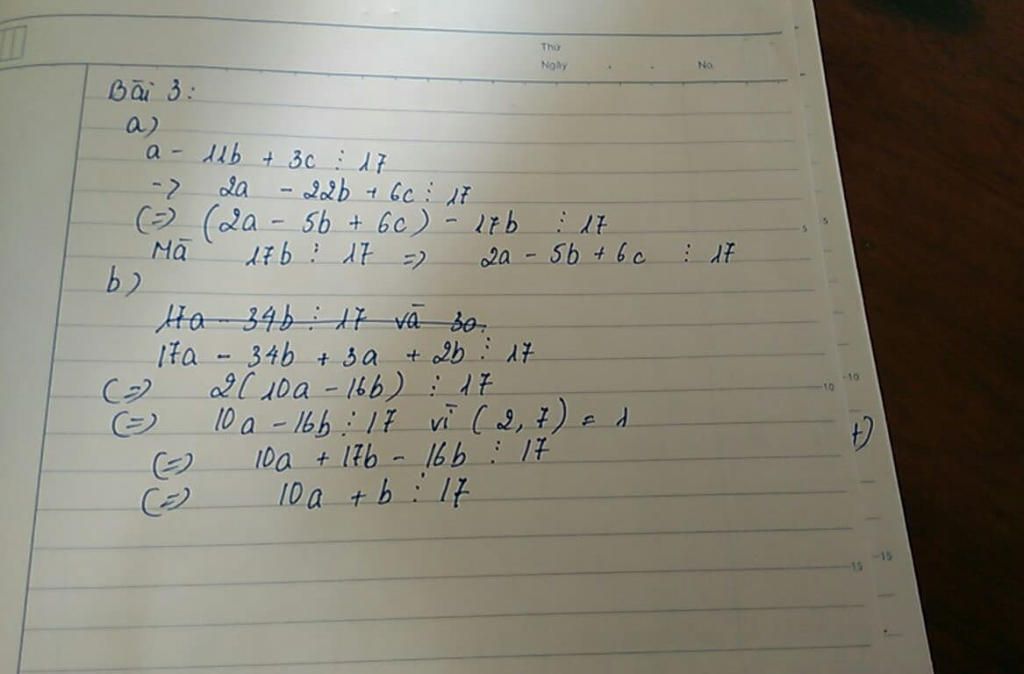 Thứ
Ngày . . No
Bài 3:
a)
a - 11b + 3c ⋮ 17
-> 2a - 22b + 6c ⋮ 17
(=) (2a - 5b + 6c) - 17b ⋮ 17
Mà 17b ⋮ 17 => 2a - 5b + 6c ⋮ 17
b)
17a - 34b ⋮ 17 và 3a
17a - 34b + 3a + 2b ⋮ 17
(=) 2(10a - 16b) ⋮ 17
(=) 10a - 16b ⋮ 17 vì (2, 7) = 1
(=) 10a + 17b - 16b ⋮ 17
(=) 10a + b ⋮ 17
5
5
10
10
t)
15
15